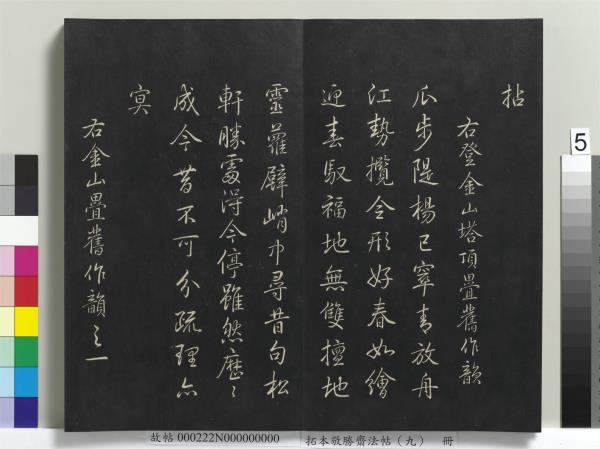 拈
右登金山塔頂疊舊作韻
瓜步隄楊已窣青放舟
江勢攬全形好春如繪
迎春馭福地無雙擅地
靈蘿壁峭中尋昔句松
軒勝處得今停雖然歷〻
成今昔不可分疏理亦
冥
右金山疊舊作韻之一
5
故帖 000222N000000000
拓本敬勝齋法帖（九） 冊